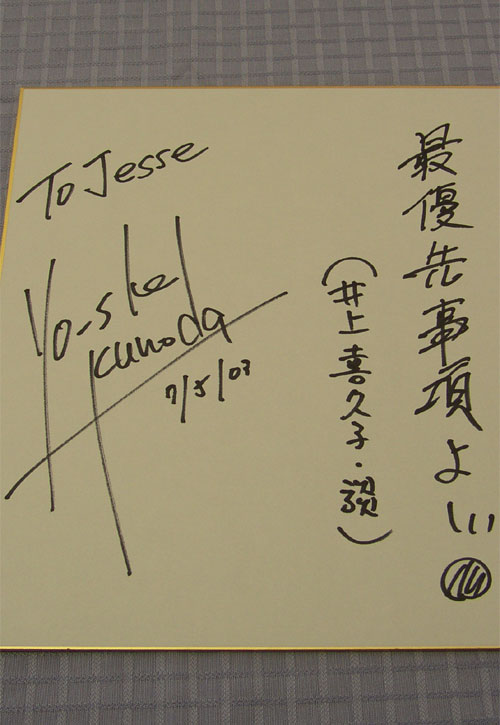 To Jesse
Yo-ske
Kuroda
7/5/03
最優先事項よ!!!
(井上喜久子・)